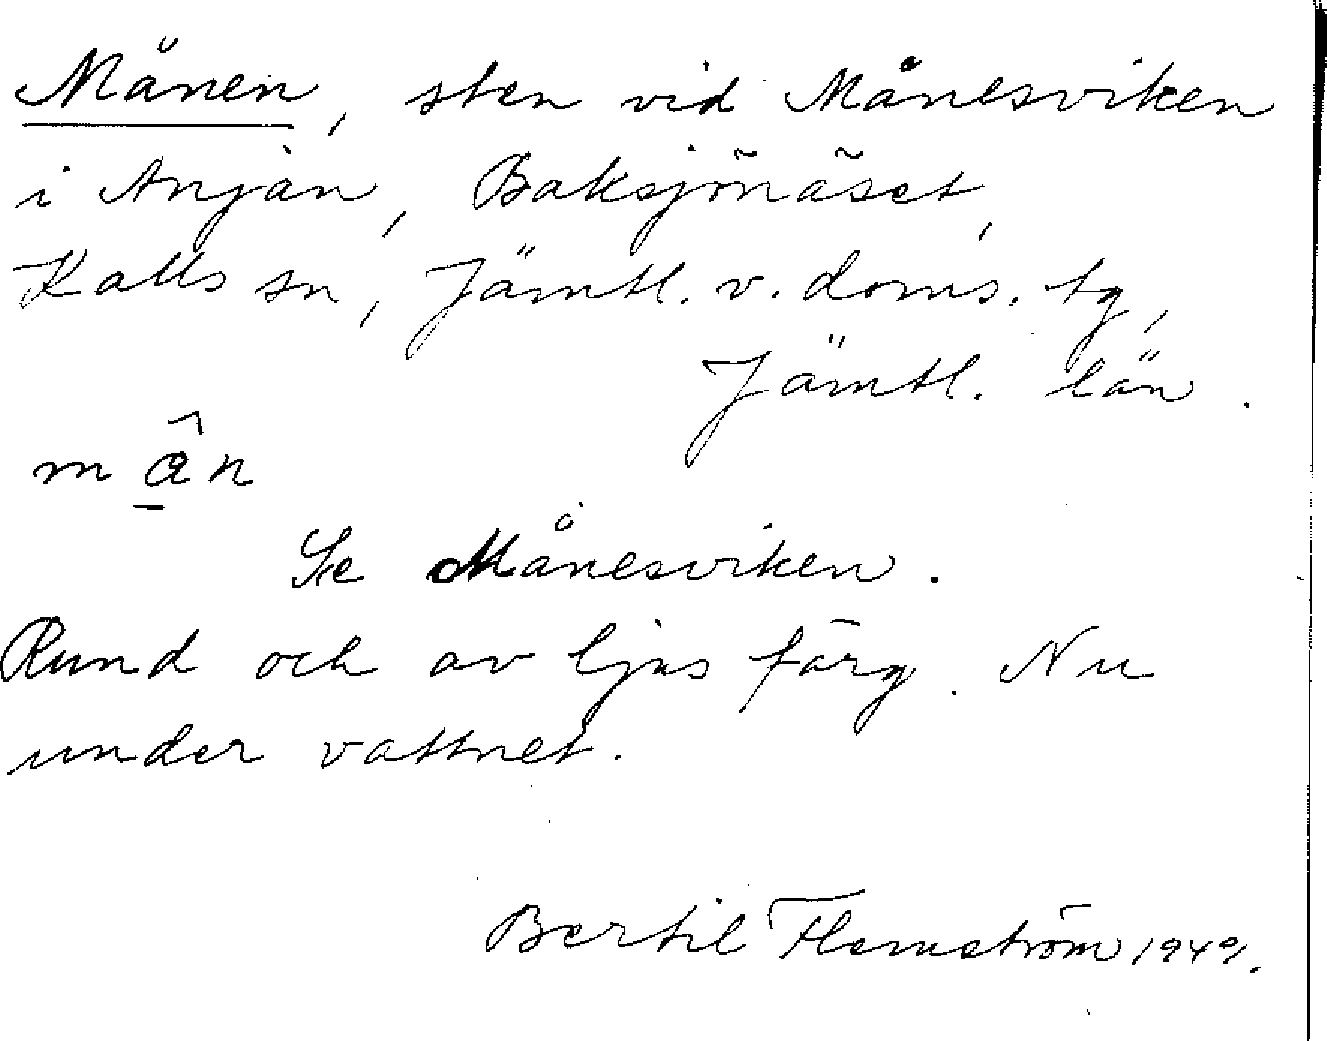 Månen, sten vid Månesviken
i Anjan, Baksjönäset,
Kalls sn, Jämtl. v. doms. tg,
Jämtl. län.
mân
Se Månesviken.
Rund och av ljus färg. Nu
under vattnet.
Bertil Flemström 1949.